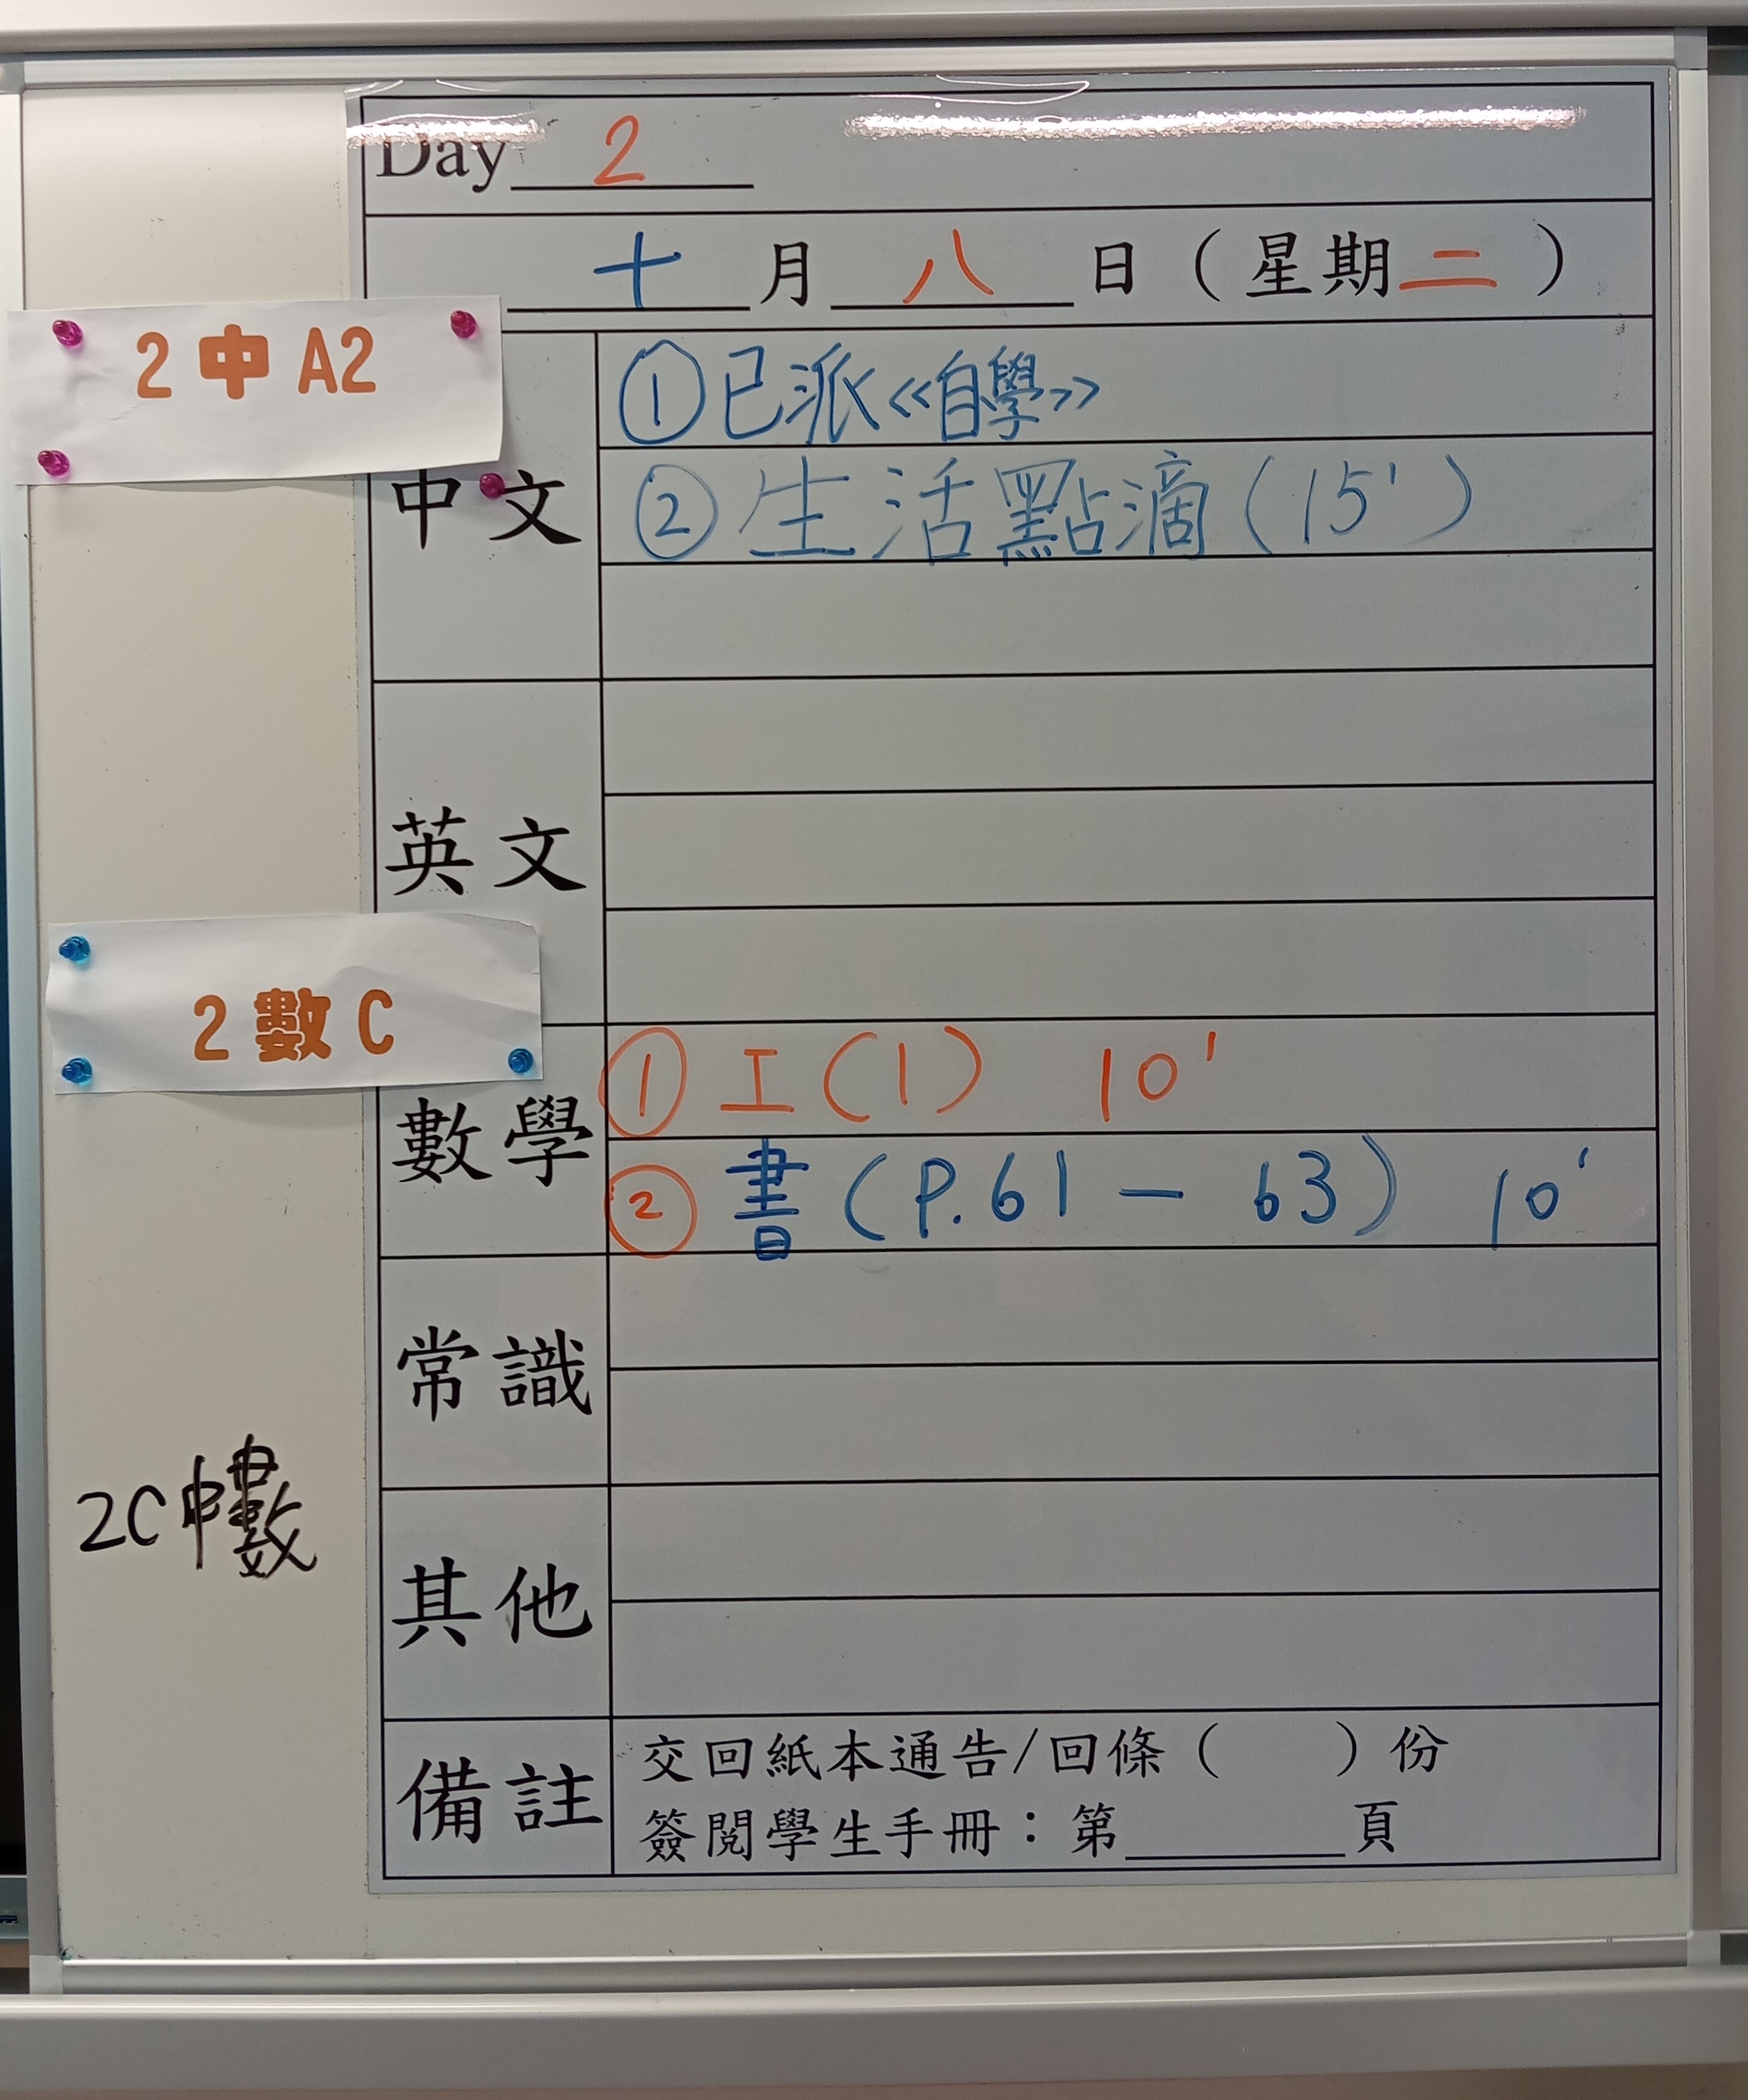 Day 2
十 月 八 日 ( 星期二 )
2 中 A2
中文
① 已派 <<自學>>
② 生活點滴 (15')
英文
2 數 C
數學
① 工(1) 10'
② 書 (P.61 - 63) 10'
常識
2C 中數
其他
備註
交回紙本通告/回條 ( ) 份
簽閱學生手冊：第______頁